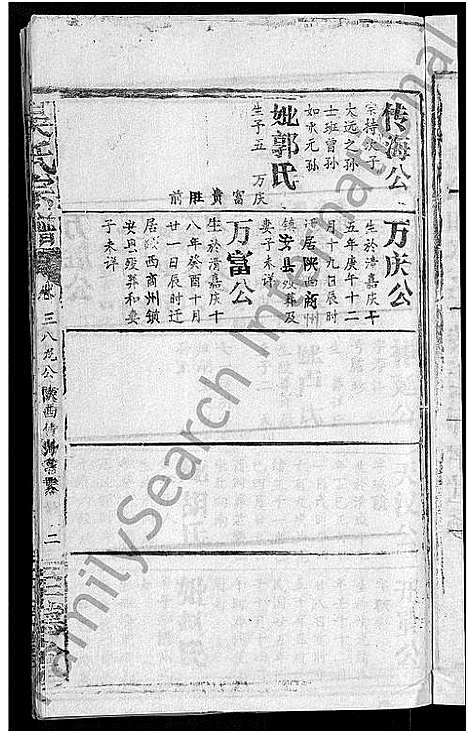 传海公
宗持次子
大远之孙
士班曾孙
如永元孙
妣郭氏
生子五 万庆
富 贵 胜 前
万庆公
生於清嘉庆十
五年庚午十二
月十九日辰时
迁居陕西商州
镇安县殁葬及
妻子未详
万富公
生於清嘉庆十
八年癸酉十月
廿一日辰时迁
居陕西商州镇
安县殁葬和妻
子未详
吴氏宗谱
卷三
八龙公陕西
二
FamilySearch International